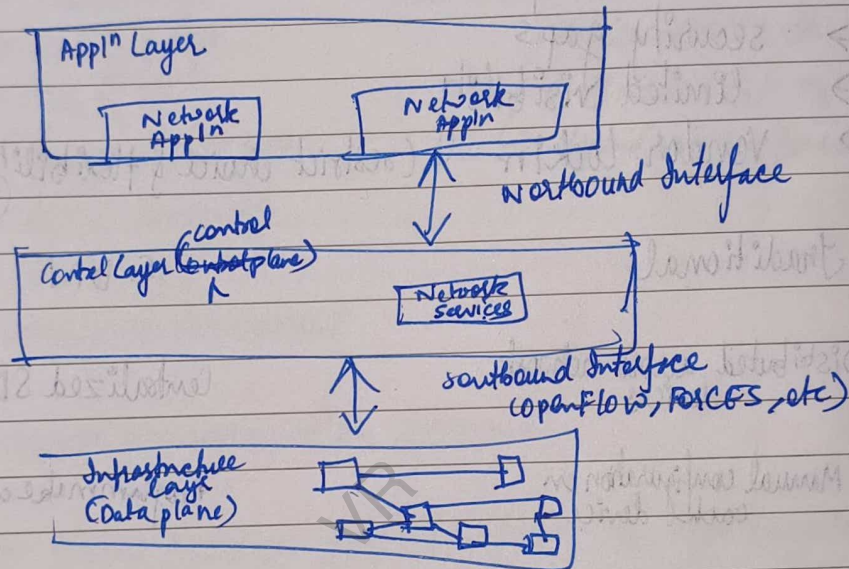 Appln Layer
Network
Appln
Network
Appln
Northbound Interface
control
Control Layer (plane)
Network
Services
Southbound Interface
(OpenFlow, FORCES, etc)
Infrastructure
Layer
(Data plane)
VR